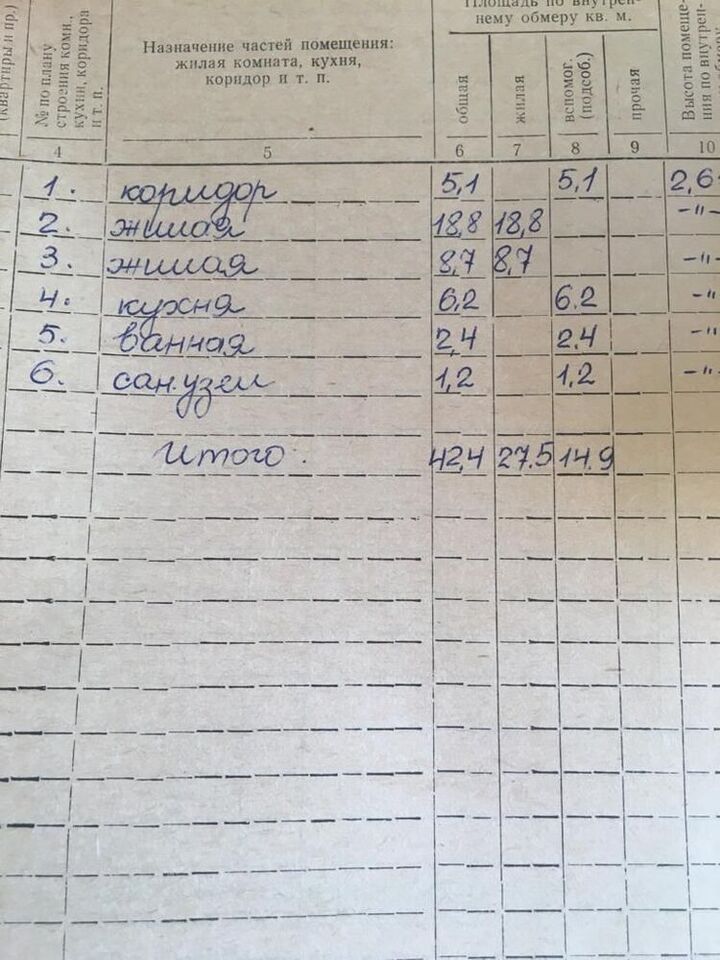 Площадь по внутрен-
нему обмеру кв. м.
(квартиры и пр.)
№ по плану
строения комн.,
кухни, коридора
и т. п.
Назначение частей помещения:
жилая комната, кухня,
коридор и т. п.
общая
жилая
вспомог.
(подсоб.)
прочая
Высота помеще-
ния по внутрен-
4 5 6 7 8 9 10
1. коридор 5,1 5,1 2,6
2. жилая 18,8 18,8 -"-
3. жилая 8,7 8,7 -"-
4. кухня 6,2 6.2 -"
5. ванная 2,4 2.4 -"
6. сан.узел 1,2 1,2 -"
Итого: 42,4 27.5 14.9